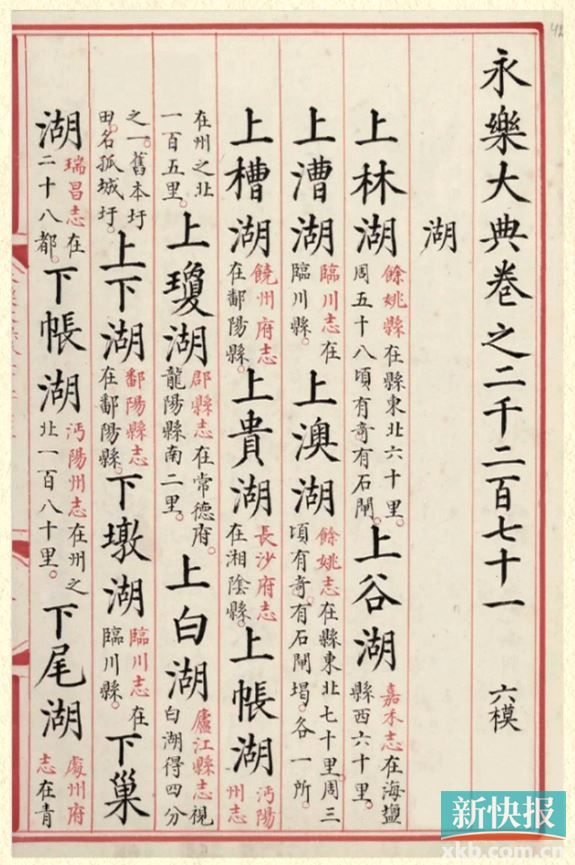 永樂大典卷之二千二百七十一 六模
湖
上林湖 餘姚縣在縣東北六十里。周五十八頃有奇有石閘。上谷湖 嘉禾志在海鹽縣西六十里。
上漕湖 臨川志在臨川縣。上澳湖 餘姚志在縣東北七十里周三頃有奇。有石閘堨。各一所。
上槽湖 饒州府志在鄱陽縣。上貴湖 長沙府志在湘陰縣。上帳湖 沔陽州志
在州之北一百五里。上瓊湖 郡縣志在常德府。龍陽縣南二里。上白湖 廬江縣志視白湖得四分
之一。舊本圩田。名孤城圩。上下湖 鄱陽縣志在鄱陽縣。下墩湖 臨川志在臨川縣。下巢
湖 瑞昌志在二十八都。下帳湖 沔陽州志在州之北一百八十里。下尾湖 處州府志在青
新快报
xkb.com.cn